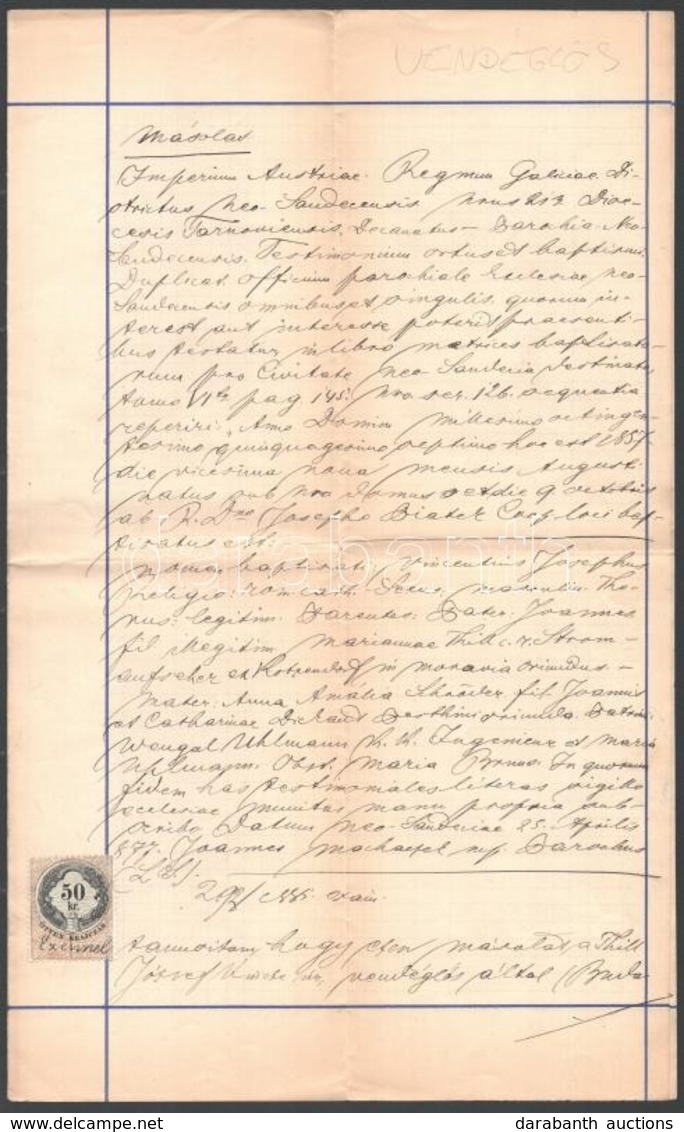 VENDÉGLŐS
Másolat
Imperium Austriae. Regnum Galiciae. Di-
strictus Neo-Sandecensis Dioe-
cesis Tarnoviensis, Decanatus - Parochia Neo-
Sandecensis. Testimonium ortus et baptismi
Duplicat. Officium parochiale Ecclesiae neo-
Sandecensis omnibus et singulis, quorum in-
terest aut interesse poterit praesenti-
bus testatur in libro matrices baptisato-
rum pro Civitate neo-Sandecia destinato,
tomo pag 145. Nro ser. 126. sequentia
reperiri: "Anno Domini millesimo octingen-
tesimo quinquagesimo septimo hoc est 1857
die vicesima nona mensis Augusti
natus sub nro domus et die 9 octobris
ab R. Dno Josepho Coop. loci bap-
tisatus est:
Nomen baptisati: Vincentius Josephus
Religio: róm. cath. Sexus: masculus. Tho-
rus: legitim. Parentes: Pater: Joannes
fil illegitim. Mariannae Thill Strom-
in Moravia oriundus. -
Mater: Anna Amália Schröder fil. Joannis
et Catharinae oriunda. Patrini:
Wengal Uhlmann k. k. Ingenieur et Maria
Uhlmann. Obst. Maria In quorum
fidem has testimoniales literas sigillo
ecclesiae munitas manu propria sub-
scribo. Datum Neo-Sandeciae 25. Aprilis
877. Joannes Parochus
(L. S.)
50
kr.
ÖTVEN KRAJCZÁR
Ezennel
tanusitom, hogy ezen másolat, a Thill
József vendéglős által (Buda-
darabanth
www.delcampe.net
darabanth auctions